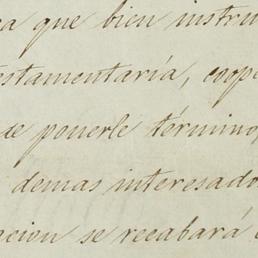 que bien instru
testamentaría, coope
ponerle término,
demas interesado
acion se recabará